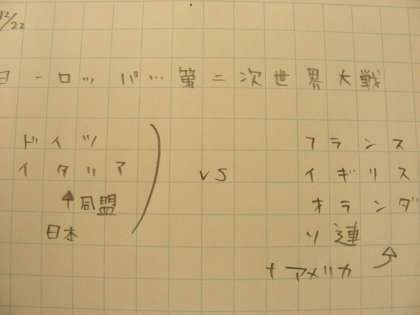 12/22
ヨーロッパ…第二次世界大戦
ドイツ
イタリア
↑同盟
日本
vs
フランス
イギリス
オランダ
ソ連
+アメリカ